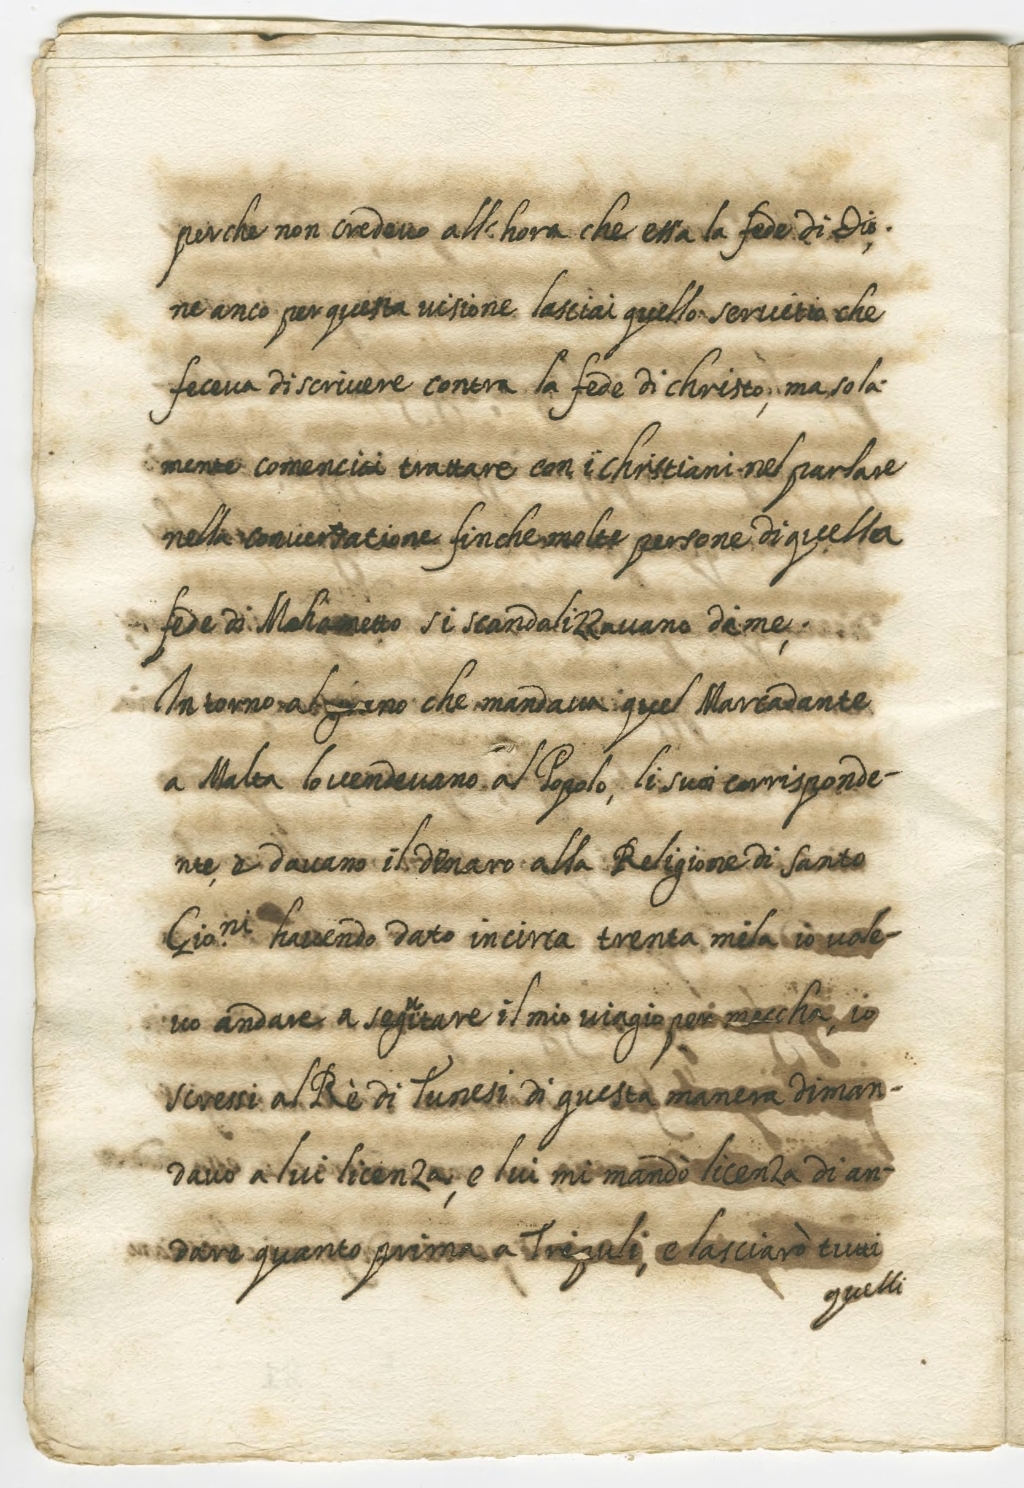 perche non credeuo all'hora che essa la fede di Dio,.
ne anco per questa uisione lasciai quello seruitio che
faceua di scriuere contra la fede di christo, ma sola-
mente comenciai trattare con i christiani nel parlare
nella conuersatione finche molte persone di quella
fede di Mahometto si scandalizzauano di me,.
Intorno al grano che mandaua quel Marcadante
a Malta lo uendeuano al Popolo, li suoi corrisponde-
nte, e dauano il denaro alla Religione di Santo
Gio.ni hauendo dato incirca trenta mila io uole-
uo andare a seguitare il mio uiagio per meccha, io
scressi al Rè di Tunesi di questa manera diman-
dauo a lui licenza, e lui mi mandò licenza di an-
dare quanto prima a Tripuli, e lasciarò tutti
quelli